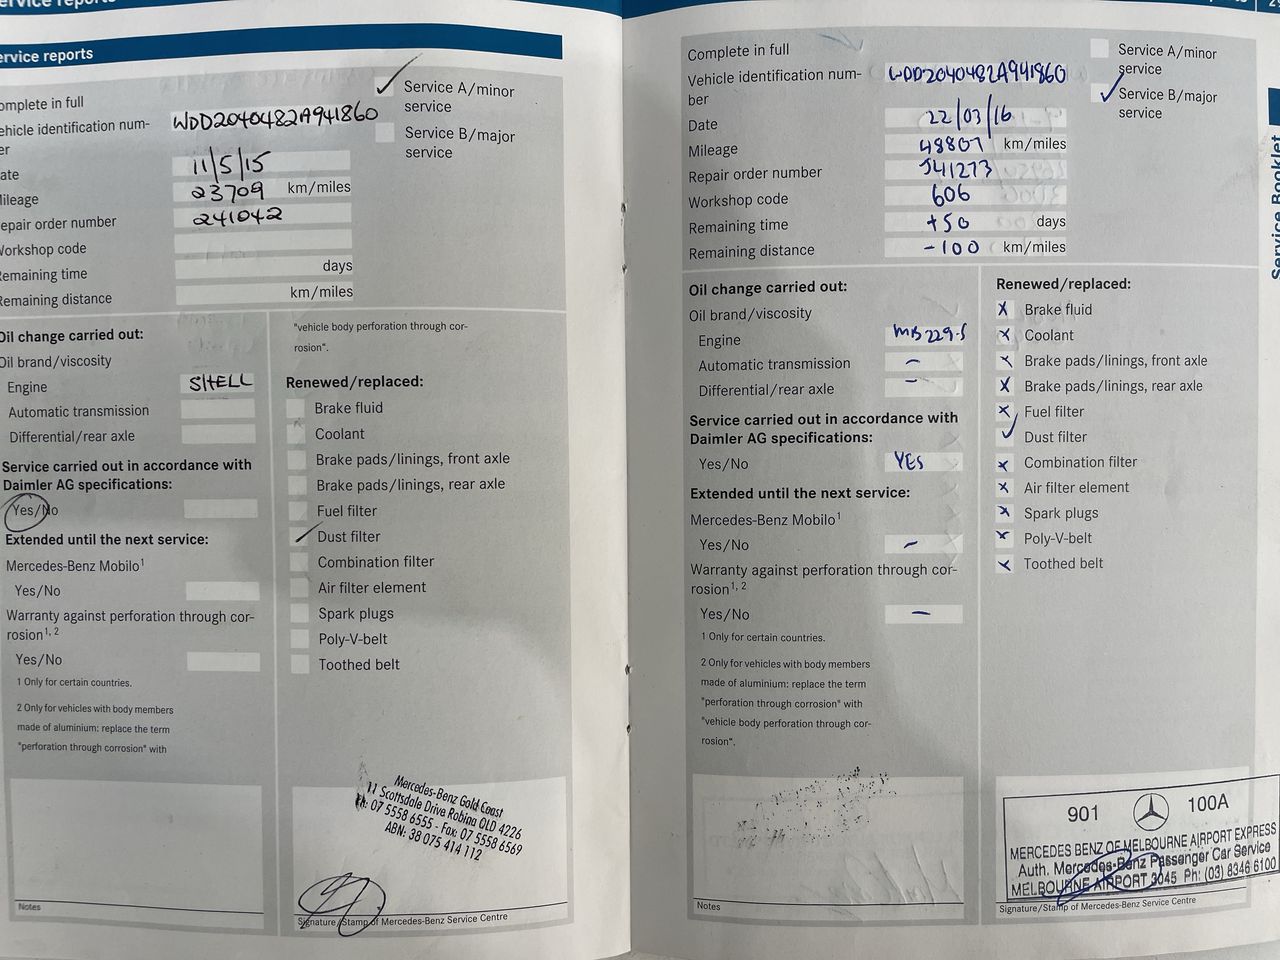 ervice reports
ervice reports
omplete in full
ehicle identification num-
er
WDD2040482A941860
ate
11/5/15
ileage
23709 km/miles
epair order number
241042
Workshop code
Remaining time
days
Remaining distance
km/miles
✓ Service A/minor
service
Service B/major
service
Oil change carried out:
Oil brand/viscosity
Engine
SHELL
Automatic transmission
Differential/rear axle
Service carried out in accordance with
Daimler AG specifications:
Yes/No
Extended until the next service:
Mercedes-Benz Mobilo1
Yes/No
Warranty against perforation through cor-
rosion1, 2
Yes/No
1 Only for certain countries.
2 Only for vehicles with body members
made of aluminium: replace the term
"perforation through corrosion" with
"vehicle body perforation through cor-
rosion".
Renewed/replaced:
Brake fluid
Coolant
Brake pads/linings, front axle
Brake pads/linings, rear axle
Fuel filter
✓ Dust filter
Combination filter
Air filter element
Spark plugs
Poly-V-belt
Toothed belt
Notes
Mercedes-Benz Gold Coast
11 Scottsdale Drive Robina QLD 4226
Ph: 07 5558 6555 - Fax: 07 5558 6569
ABN: 38 075 414 112
Signature/Stamp of Mercedes-Benz Service Centre
Complete in full
Vehicle identification num-
ber
WDD2040482A941860
Date
22/03/16
Mileage
48807 km/miles
Repair order number
J41273
Workshop code
606
Remaining time
+50 days
Remaining distance
-100 km/miles
Service A/minor
service
✓ Service B/major
service
Oil change carried out:
Oil brand/viscosity
Engine
MB 229.5
Automatic transmission
-
Differential/rear axle
-
Service carried out in accordance with
Daimler AG specifications:
Yes/No
YES
Extended until the next service:
Mercedes-Benz Mobilo1
Yes/No
-
Warranty against perforation through cor-
rosion1, 2
Yes/No
-
1 Only for certain countries.
2 Only for vehicles with body members
made of aluminium: replace the term
"perforation through corrosion" with
"vehicle body perforation through cor-
rosion".
Renewed/replaced:
X Brake fluid
X Coolant
X Brake pads/linings, front axle
X Brake pads/linings, rear axle
X Fuel filter
✓ Dust filter
X Combination filter
X Air filter element
X Spark plugs
X Poly-V-belt
X Toothed belt
Notes
901 100A
MERCEDES BENZ OF MELBOURNE AIRPORT EXPRESS
Auth. Mercedes-Benz Passenger Car Service
MELBOURNE AIRPORT 3045 Ph: (03) 8346 6100
Signature/Stamp of Mercedes-Benz Service Centre
Service Booklet